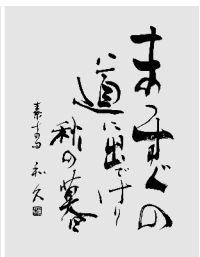 まつすぐの
道に出でけり
秋の暮
素十句
和久